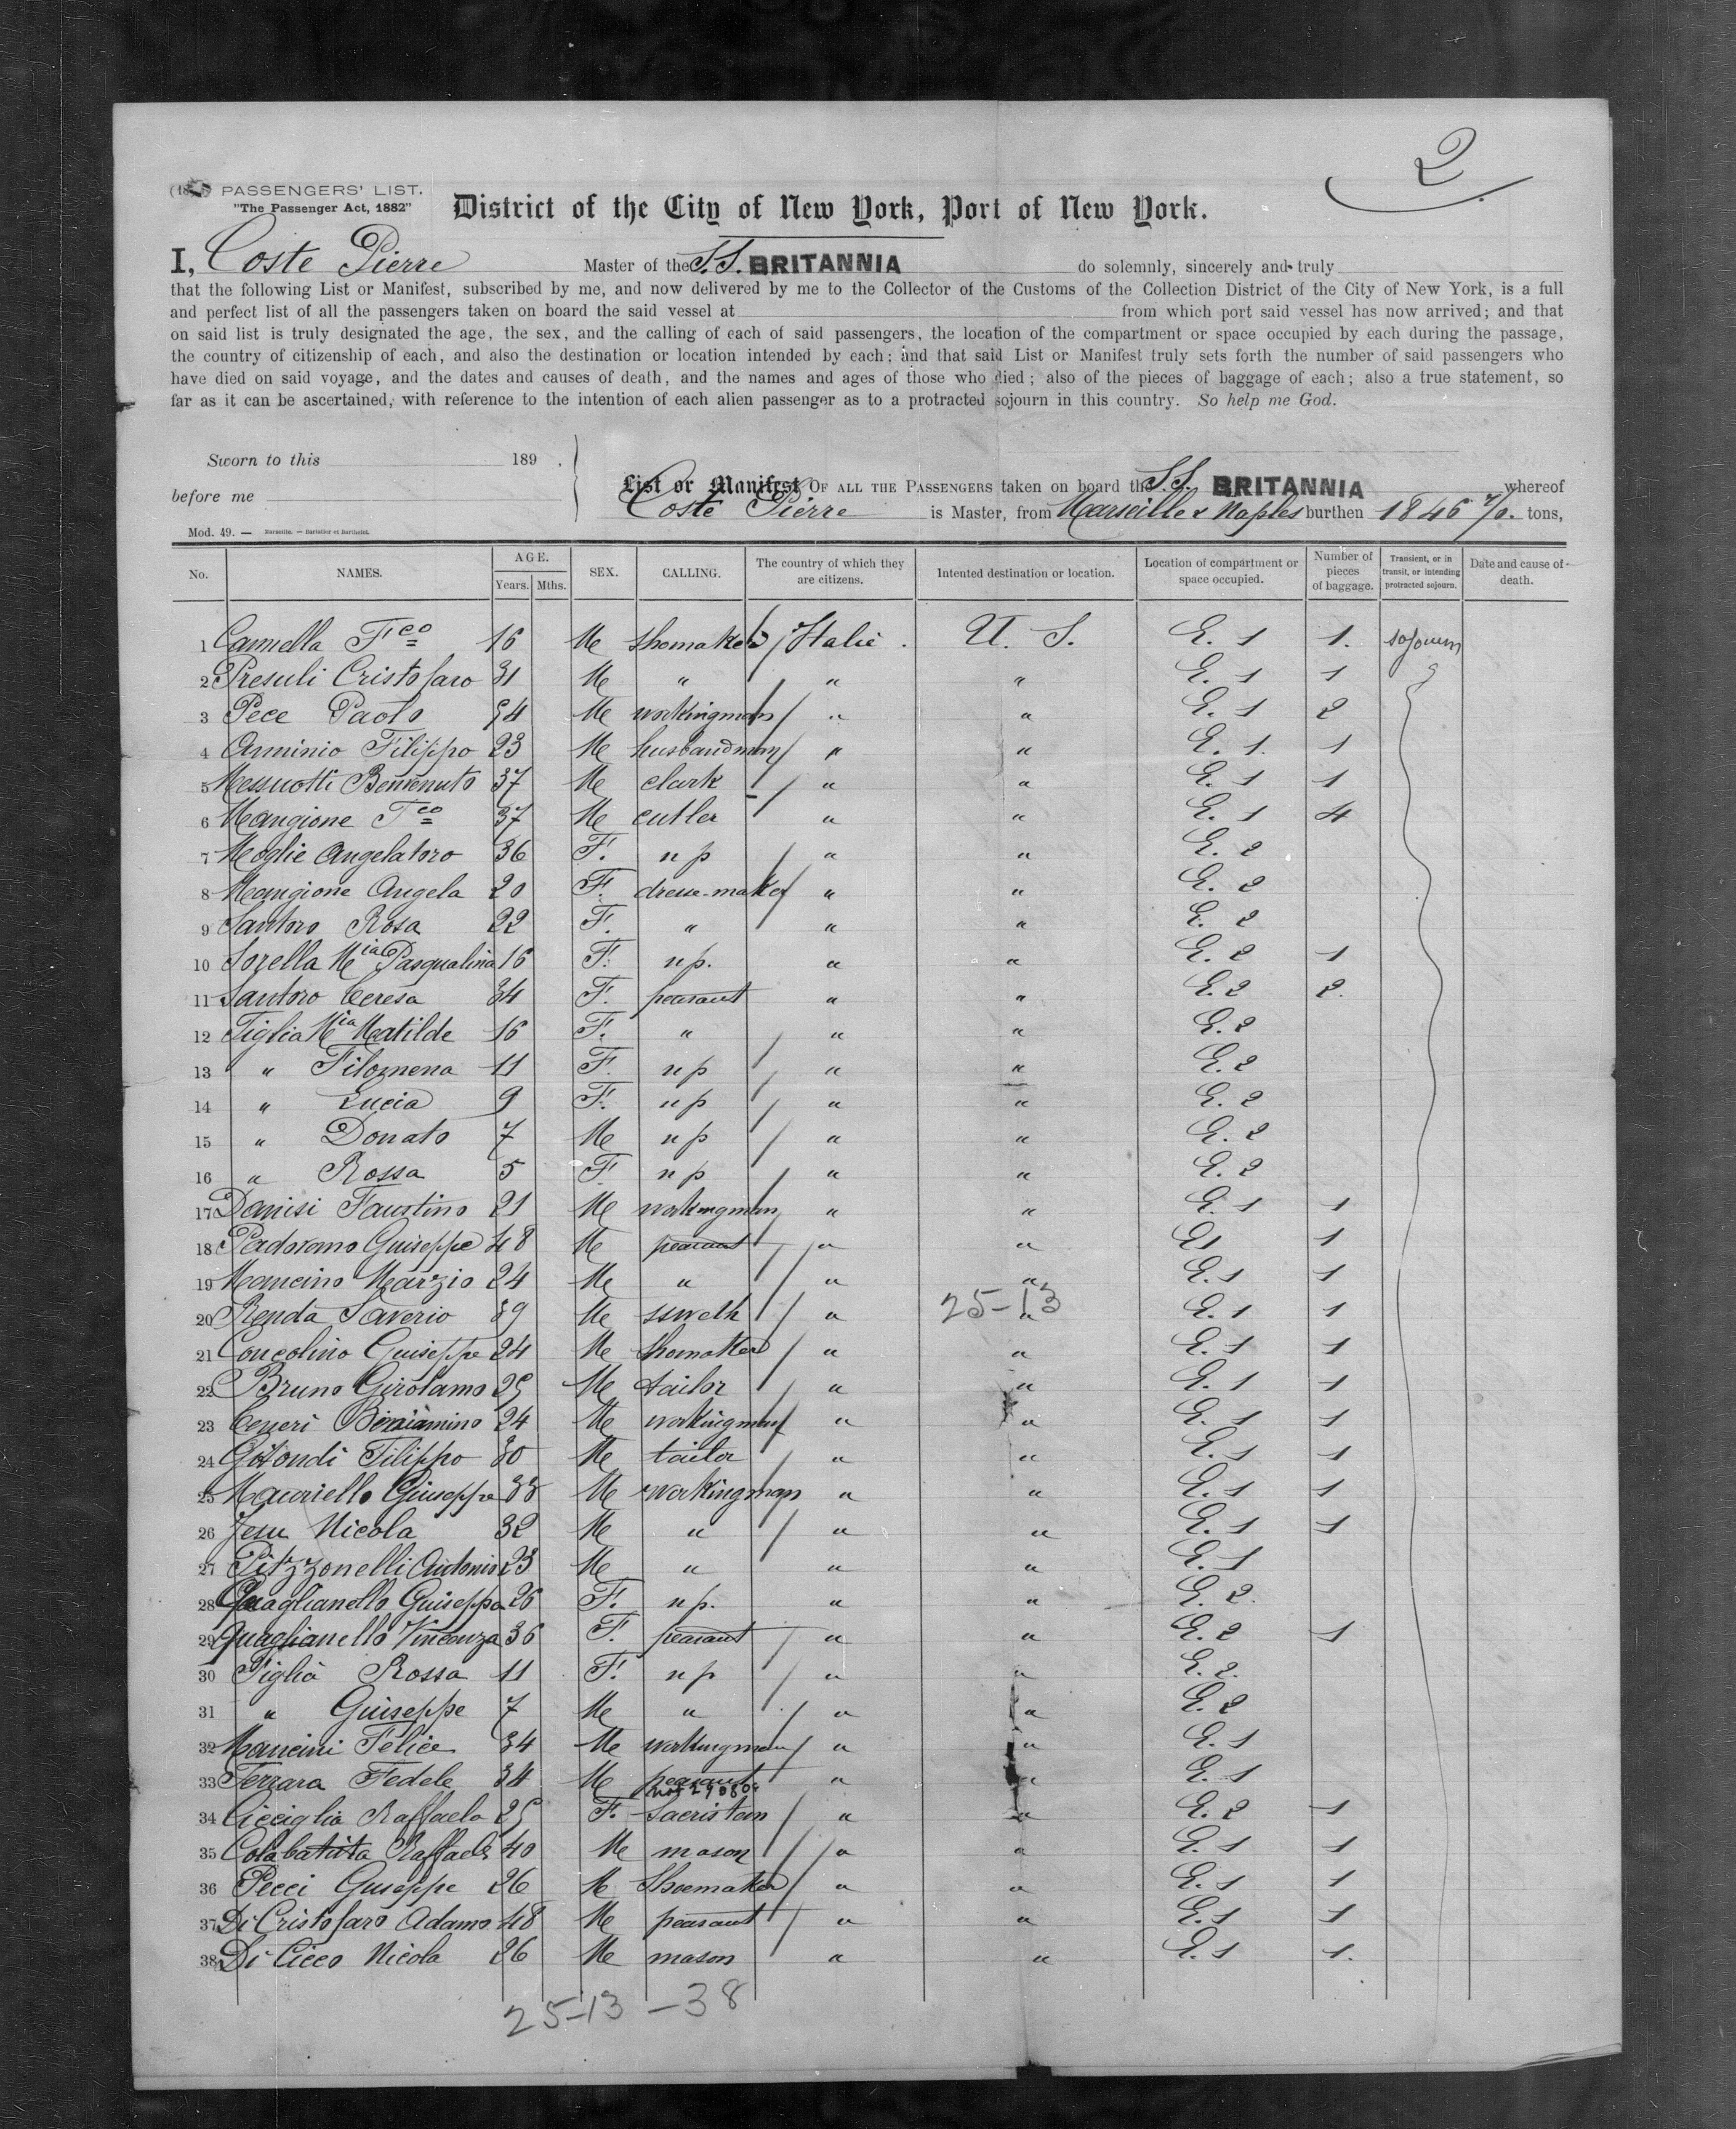 2
PASSENGERS' LIST.
"The Passenger Act, 1882"
District of the City of New York, Port of New York.
I, Coste Pierre Master of the S.S. BRITANNIA do solemnly, sincerely and truly
that the following List or Manifest, subscribed by me, and now delivered by me to the Collector of the Customs of the Collection District of the City of New York, is a full
and perfect list of all the passengers taken on board the said vessel at from which port said vessel has now arrived; and that
on said list is truly designated the age, the sex, and the calling of each of said passengers, the location of the compartment or space occupied by each during the passage,
the country of citizenship of each, and also the destination or location intended by each; and that said List or Manifest truly sets forth the number of said passengers who
have died on said voyage, and the dates and causes of death, and the names and ages of those who died; also of the pieces of baggage of each; also a true statement, so
far as it can be ascertained, with reference to the intention of each alien passenger as to a protracted sojourn in this country. So help me God.
Sworn to this 189 .
before me
List or Manifest OF ALL THE PASSENGERS taken on board the S.S. BRITANNIA whereof
Coste Pierre is Master, from Marseille & Naples burthen 1846 tons,
Mod. 49. — Marseille. — Barlatier et Barthelet.
No. NAMES. AGE. Years. Mths. SEX. CALLING. The country of which they are citizens. Intented destination or location. Location of compartment or space occupied. Number of pieces of baggage. Transient, or in transit, or intending protracted sojourn. Date and cause of death.
1 F.co 16 M shomaker Italie. U. S. E. 1 1. sojourn
2 Presuli Cristofaro 31 M " " " E. 1 1 "
3 Pece Paolo M workingman " " E. 1 2
4 Arminio Filippo 23 M husbandman " " E. 1. 1
5 Benvenuto 37 M clark " " E. 1 1
6 Mangione F.co 37 M cutler " " E. 1 4
7 Moglie Angelatoro 36 F. n p " " E. 2
8 Mangione Angela 20 F. dresse-maker " " E. 2
9 Santoro Rosa 22 F. " " " E. 2
10 Sorella M.ia Pasqualina 16 F. n p. " " E. 2 1
11 Santoro Teresa 34 F. peasant " " E. 2 2.
12 Figlia M.ia Matilde 16 F. " " " E. 2
13 " Filomena 11 F. n p " " E. 2
14 " Lucia 9 F. n p " " E. 2
15 " Donato 7 M n p " " E. 2
16 " Rossa 5 F. n p " " E. 2
17 Danisi Faustino 21 M workingman " " E. 1 1
18 Padovano Guiseppe 48 M peasant " " E 1 1
19 Mancino Marzio 24 M " " " E. 1 1
20 Renda Saverio 39 M " 25-13 " E. 1 1
21 Concolino Guiseppe 24 M shomaker " " E. 1 1
22 Bruno Girolamo 25 M tailor " " E. 1 1
23 Ceneri Beniamino 24 M workingman " " E. 1 1
24 Filippo 30 M tailor " " E. 1 1
25 Mauriello Giuseppe 33 M workingman " " E. 1 1
26 Jesu Nicola 32 M " " " E. 1 1
27 Pitzzonelli Antonio 23 M " " " E. 1
28 Quaglianello Guiseppa 26 F. n p. " " E. 2.
29 Quaglianello Vincenza 36 F. peasant " " E. 2 1
30 Figlia Rossa 11 F. n p " " E. 2.
31 " Guiseppe 7 M " " " E. 2
32 Mancini Felice 34 M workingman " " E. 1
33 Ferrara Fedele 34 M peasant " " E. 1
34 Cicciglia Raffaela 25 F. Sacristan " " E. 2 1
35 Colabatista Raffaele 40 M mason " " E. 1 1
36 Pecci Guseppe 26 M Shoemaker " " E. 1 1
37 Di Cristofaro Adamo 48 M peasant " " E. 1 1
38 Di Cicco Nicola 26 M mason " " E. 1 1.
25-13-38